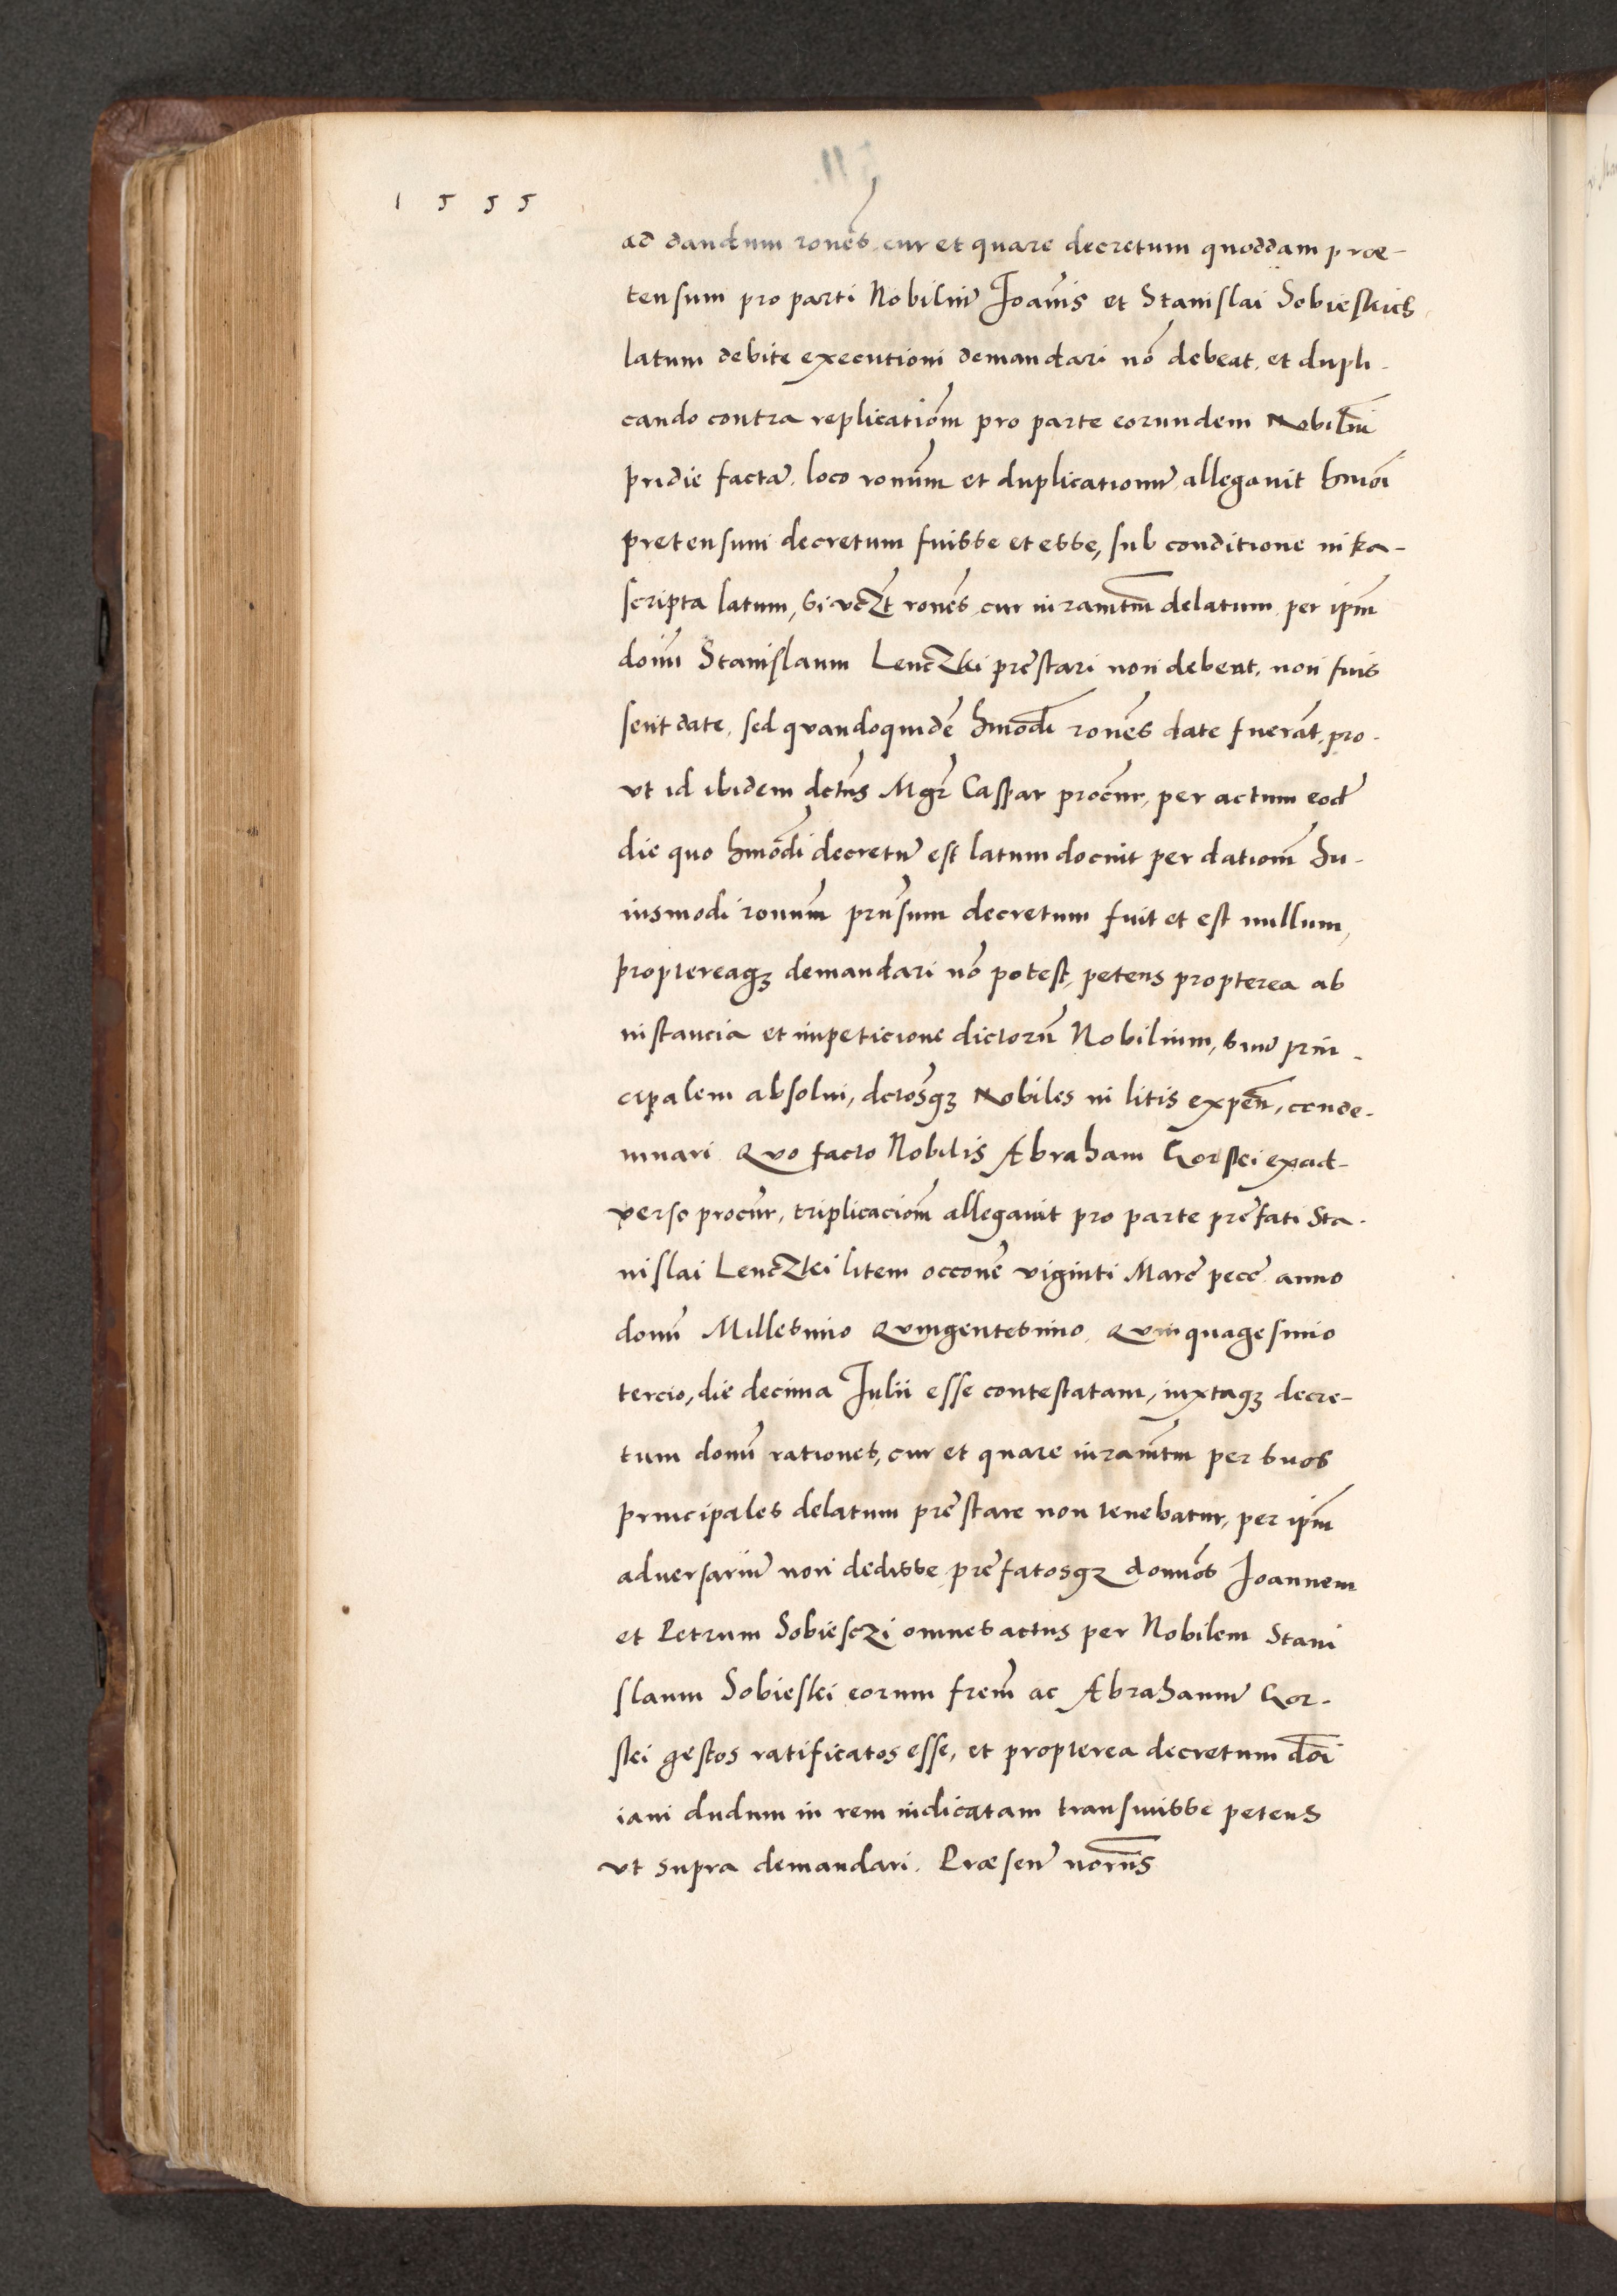 1555
ad dandum rones cur et quare decretum quoddam præ-
tensum pro parti Nobiliu Joanis et Stanislai Sobieskich
latum debite executioni demandari nō debeat, et dupli-
cando contra replicatiom pro parte eorundem Nobiliu
pridie factā, loco ronum et duplicationū allegauit hmoi
pretensum decretum fuisse et esse, sub conditione infra-
scripta latum, si vczt rones cur iuramtm delatum per ipm
dom Stanislaum Lenczki prestari non debeat, non fuis
sent date, sed quandoquidē hmodi rones date fuerāt, pro-
ut id ibidem dctus Mgr Caspar procur, per actum eodē
die quo hmodi decretū est latum docuit per dationm hu-
iusmodi ronum prnsum decretum fuit et est nullum,
proptereaqz demandari nō potest, petens propterea ab
instancia et impeticione dictorū Nobilium, suū prin-
cipalem absolui, dctosqz Nobiles in litis expen, conde-
mnari Quo facto Nobilis Abraham Gorskei exad-
verso procur, triplicaciom allegauit pro parte prefati Sta-
nislai Lenczkei litem occone viginti Marc pecc anno
domi Millesimo Quingentesimo Quinquagesimo
tercio, die decima Julii esse contestatam, iuxtaqz decre-
tum domi rationes, cur et quare iuramtm per suos
principales delatum prestare non tenebatur, per ipm
adversariū non dedisse prefatosqz domos Joannem
et Petrum Sobiesczi omnes actus per Nobilem Stani
slaum Sobieskei eorum frem ac Abrahamū Gor-
skei gestos ratificatos esse, et propterea decretum doi
iam dudum in rem iudicatam transiuisse petens
ut supra demandari. Præsen norns